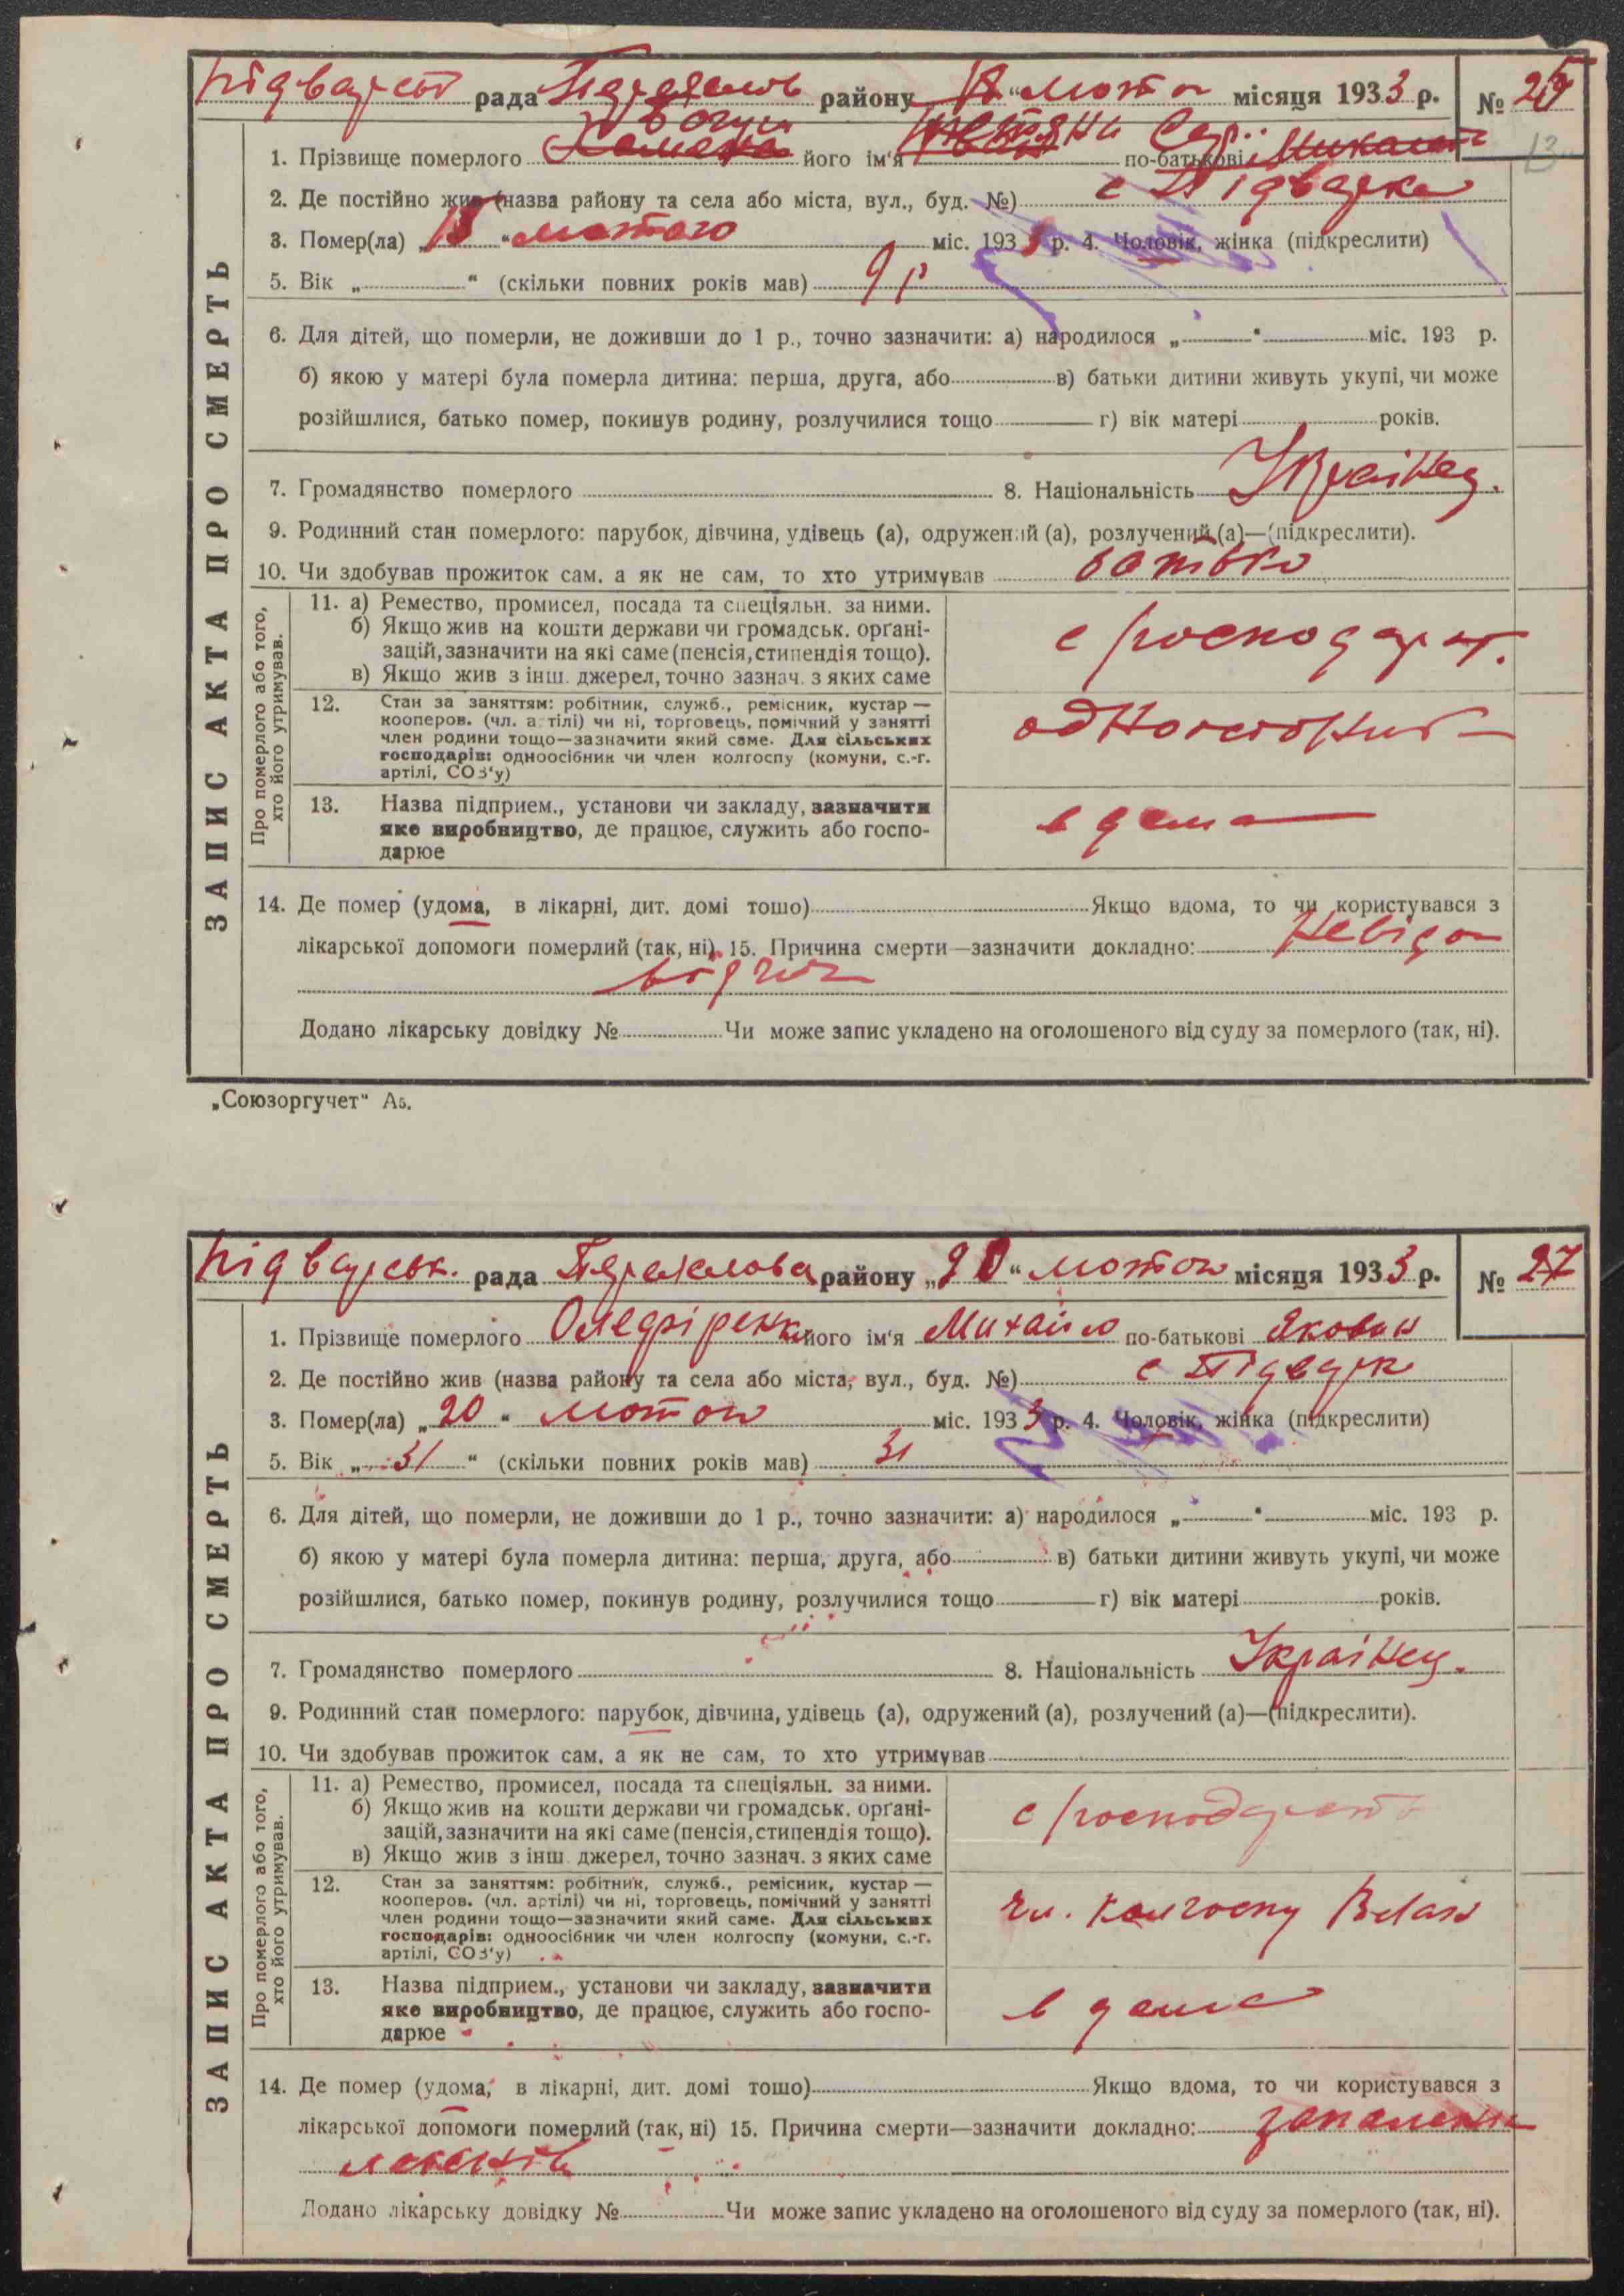 рада району місяця 1933 р. №
1. Прізвище померлого його ім'я по-батькові
2. Де постійно жив (назва району та села або міста, вул., буд. №) с
3. Помер(ла) „18“ лютого міс. 1933 р. 4. Чоловік, жінка (підкреслити)
5. Вік „ “ (скільки повних років мав) 9 р
6. Для дітей, що померли, не доживши до 1 р., точно зазначити: а) народилося „ “ міс. 193 р.
б) якою у матері була померла дитина: перша, друга, або в) батьки дитини живуть укупі, чи може
розійшлися, батько помер, покинув родину, розлучилися тощо г) вік матері років.
7. Громадянство померлого 8. Національність Українец.
9. Родинний стан померлого: парубок, дівчина, удівець (а), одружений (а), розлучений (а)—(підкреслити).
10. Чи здобував прожиток сам, а як не сам, то хто утримував батько
ЗАПИС АКТА ПРО СМЕРТЬ
Про померлого або того,
хто його утримував.
11. а) Ремество, промисел, посада та спеціяльн. за ними.
б) Якщо жив на кошти держави чи громадськ. органі-
зацій, зазначити на які саме (пенсія, стипендія тощо).
в) Якщо жив з інш. джерел, точно зазнач. з яких саме
12. Стан за заняттям: робітник, служб., ремісник, кустар —
кооперов. (чл. артілі) чи ні, торговець, помічний у занятті
член родини тощо—зазначити який саме. Для сільських
господарів: одноосібник чи член колгоспу (комуни, с.-г.
артілі, СОЗ'у)
13. Назва підприєм., установи чи закладу, зазначити
яке виробництво, де працює, служить або госпо-
дарює
14. Де помер (удома, в лікарні, дит. домі тощо) Якщо вдома, то чи користувався з
лікарської допомоги померлий (так, ні). 15. Причина смерти—зазначити докладно:
Додано лікарську довідку № Чи може запис укладено на оголошеного від суду за померлого (так, ні).
„Союзоргучет“ А5.
рада району „20“ місяця 1933 р. № 27
1. Прізвище померлого Олефіренко його ім'я Михайло по-батькові Якович
2. Де постійно жив (назва району та села або міста, вул., буд. №) с
3. Помер(ла) „20“ міс. 1933 р. 4. Чоловік, жінка (підкреслити)
5. Вік „31“ (скільки повних років мав) 31
6. Для дітей, що померли, не доживши до 1 р., точно зазначити: а) народилося „ “ міс. 193 р.
б) якою у матері була померла дитина: перша, друга, або в) батьки дитини живуть укупі, чи може
розійшлися, батько помер, покинув родину, розлучилися тощо г) вік матері років.
7. Громадянство померлого 8. Національність Українец.
9. Родинний стан померлого: парубок, дівчина, удівець (а), одружений (а), розлучений (а)—(підкреслити).
10. Чи здобував прожиток сам, а як не сам, то хто утримував
ЗАПИС АКТА ПРО СМЕРТЬ
Про померлого або того,
хто його утримував.
11. а) Ремество, промисел, посада та спеціяльн. за ними.
б) Якщо жив на кошти держави чи громадськ. органі-
зацій, зазначити на які саме (пенсія, стипендія тощо).
в) Якщо жив з інш. джерел, точно зазнач. з яких саме
12. Стан за заняттям: робітник, служб., ремісник, кустар —
кооперов. (чл. артілі) чи ні, торговець, помічний у занятті
член родини тощо—зазначити який саме. Для сільських
господарів: одноосібник чи член колгоспу (комуни, с.-г.
артілі, СОЗ'у)
чл. колгоспу
13. Назва підприєм., установи чи закладу, зазначити
яке виробництво, де працює, служить або госпо-
дарює
14. Де помер (удома, в лікарні, дит. домі тощо) Якщо вдома, то чи користувався з
лікарської допомоги померлий (так, ні) 15. Причина смерти—зазначити докладно: запалення
легенів
Додано лікарську довідку № Чи може запис укладено на оголошеного від суду за померлого (так, ні).